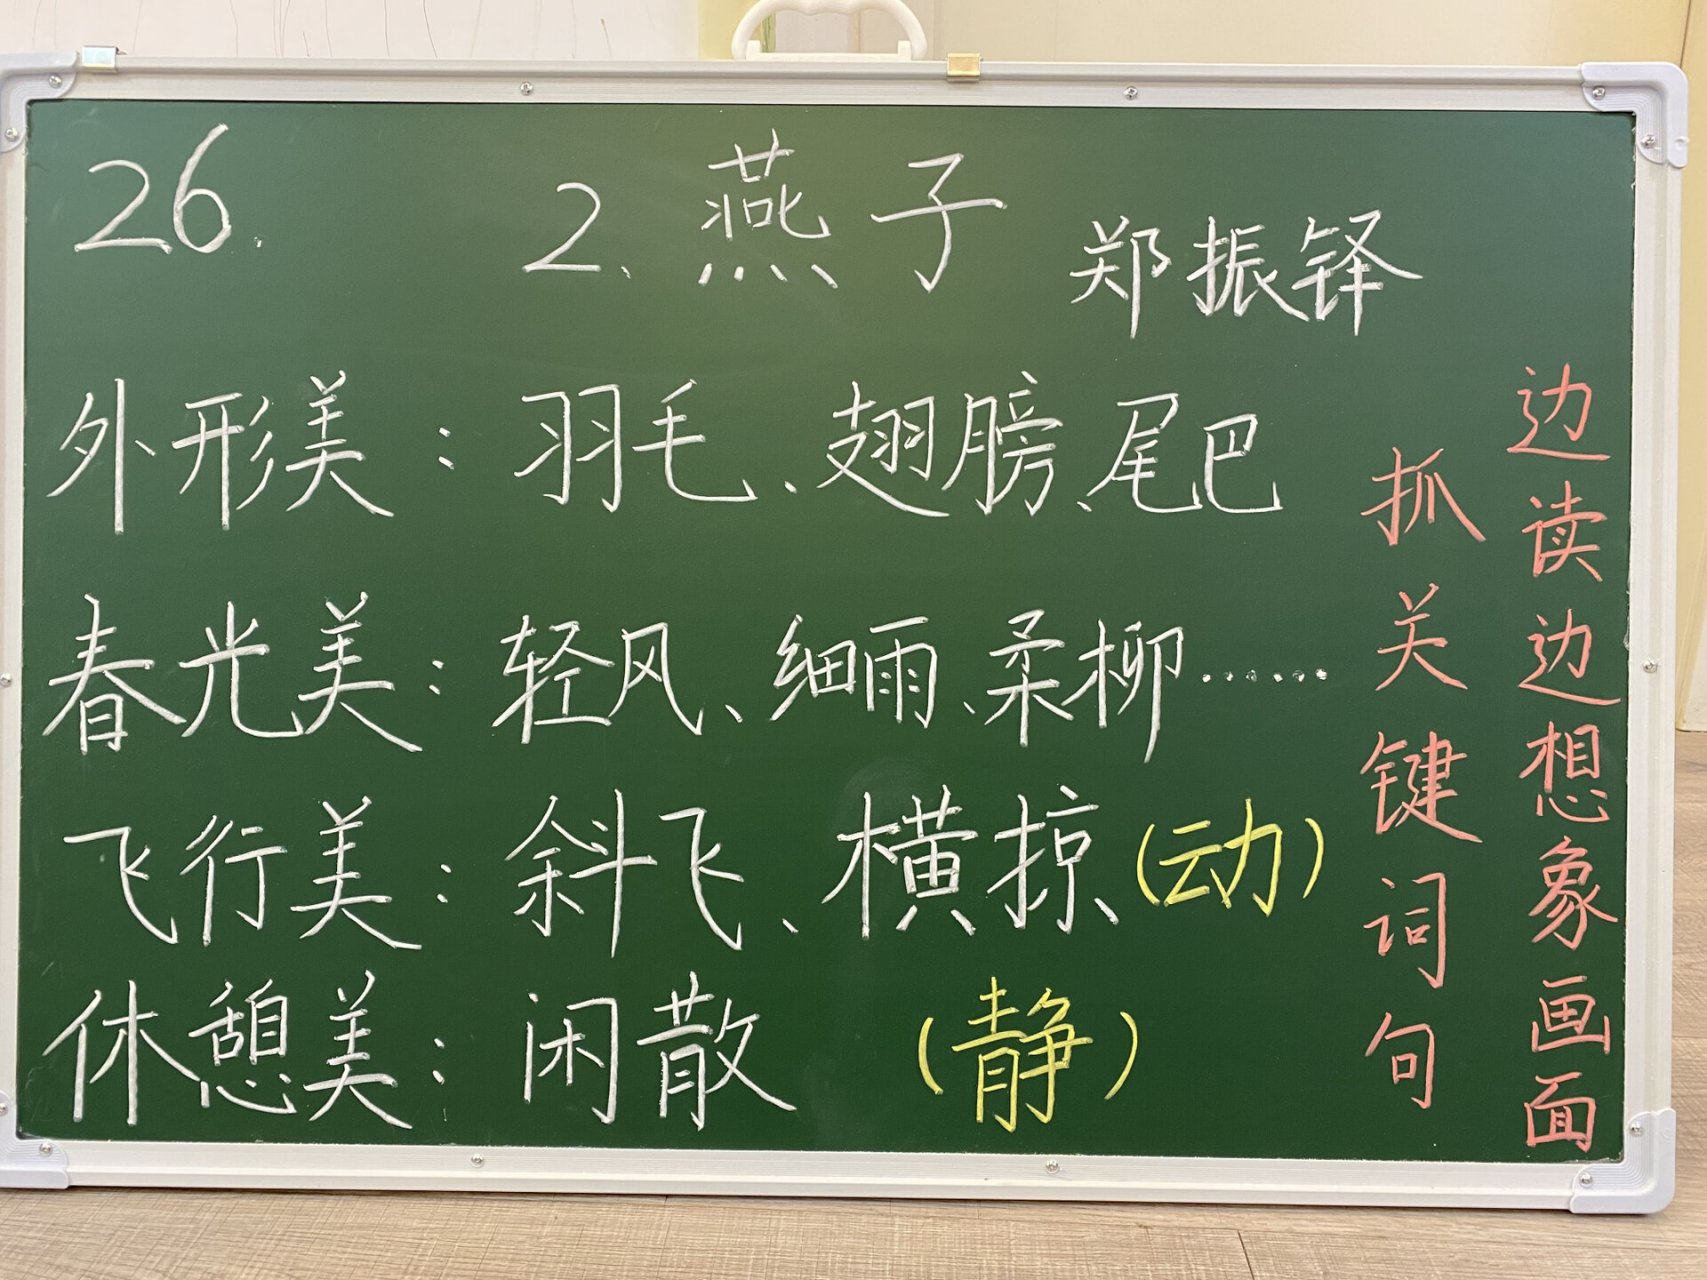 26.
2、燕子 郑振铎
外形美：羽毛、翅膀、尾巴
春光美：轻风、细雨、柔柳……
飞行美：斜飞、横掠、（动）
休憩美：闲散 （静）
抓关键词句
边读边想象画面